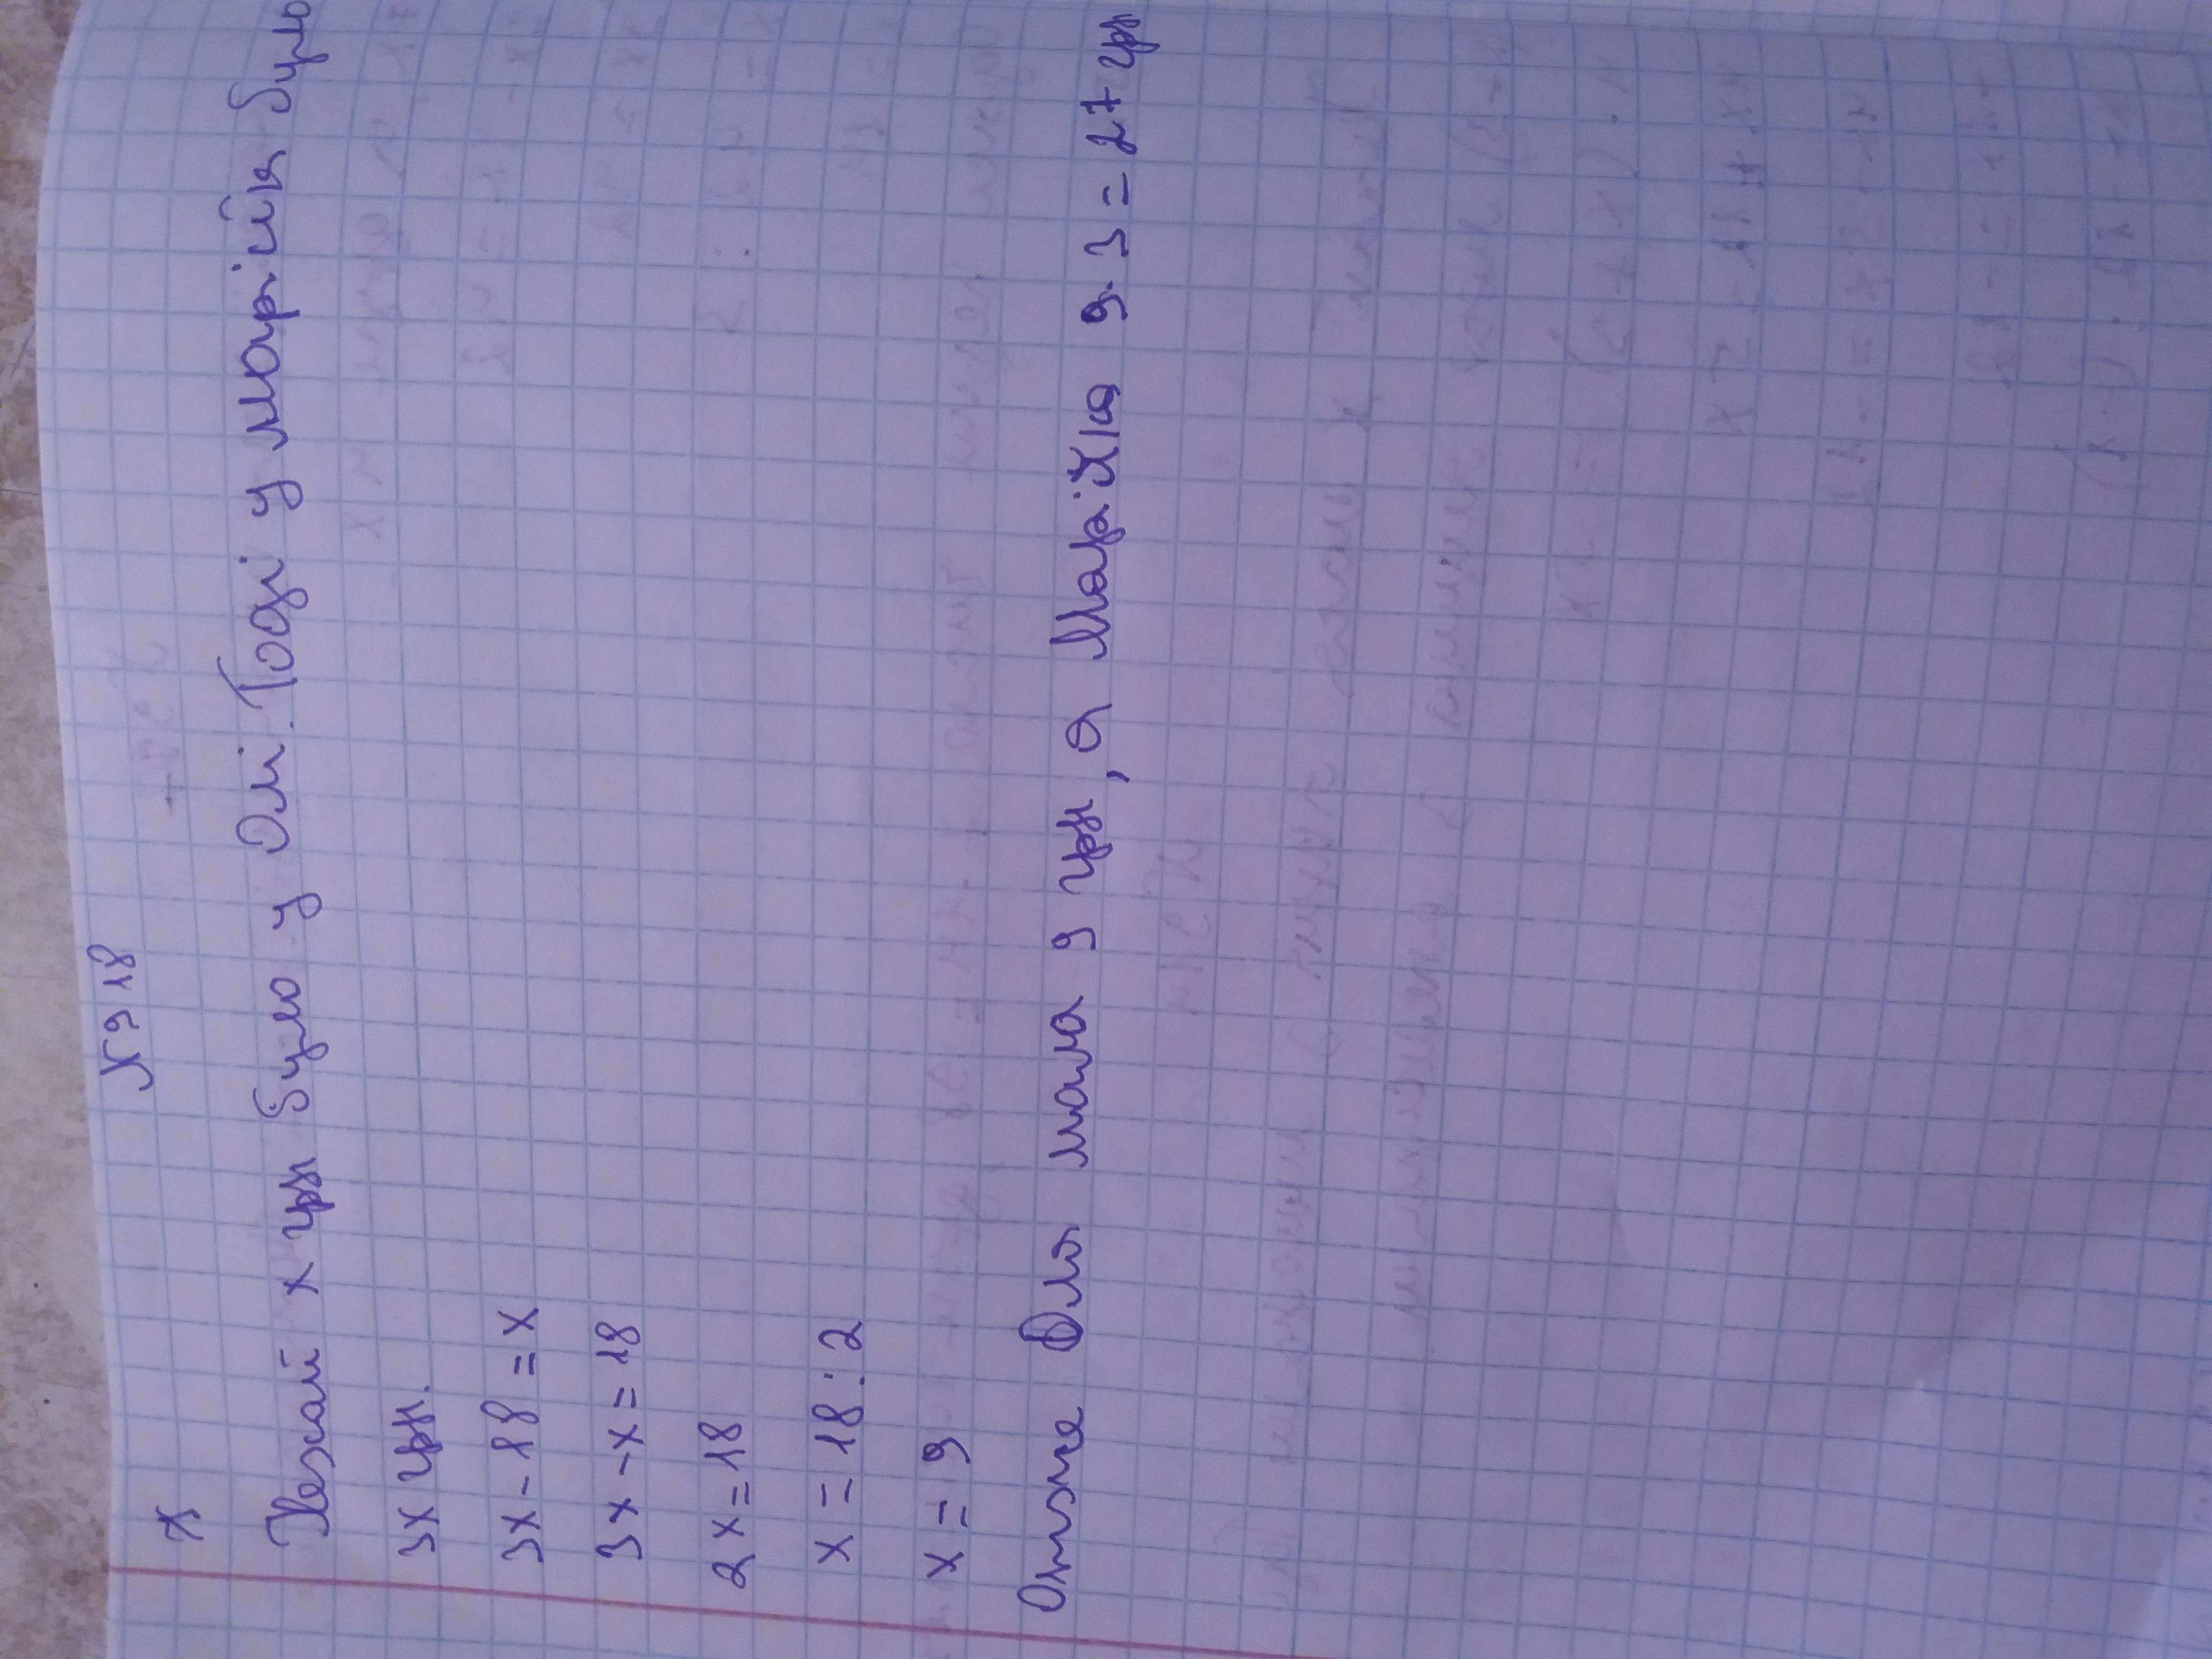 № 918
x
Нехай x грн було у Олі. Тоді у марійки було
3x грн.
3x - 18 = x
3x - x = 18
2x = 18
x = 18 : 2
x = 9
Отже Оля мала 9 грн, а Марійка 9·3 = 27 грн